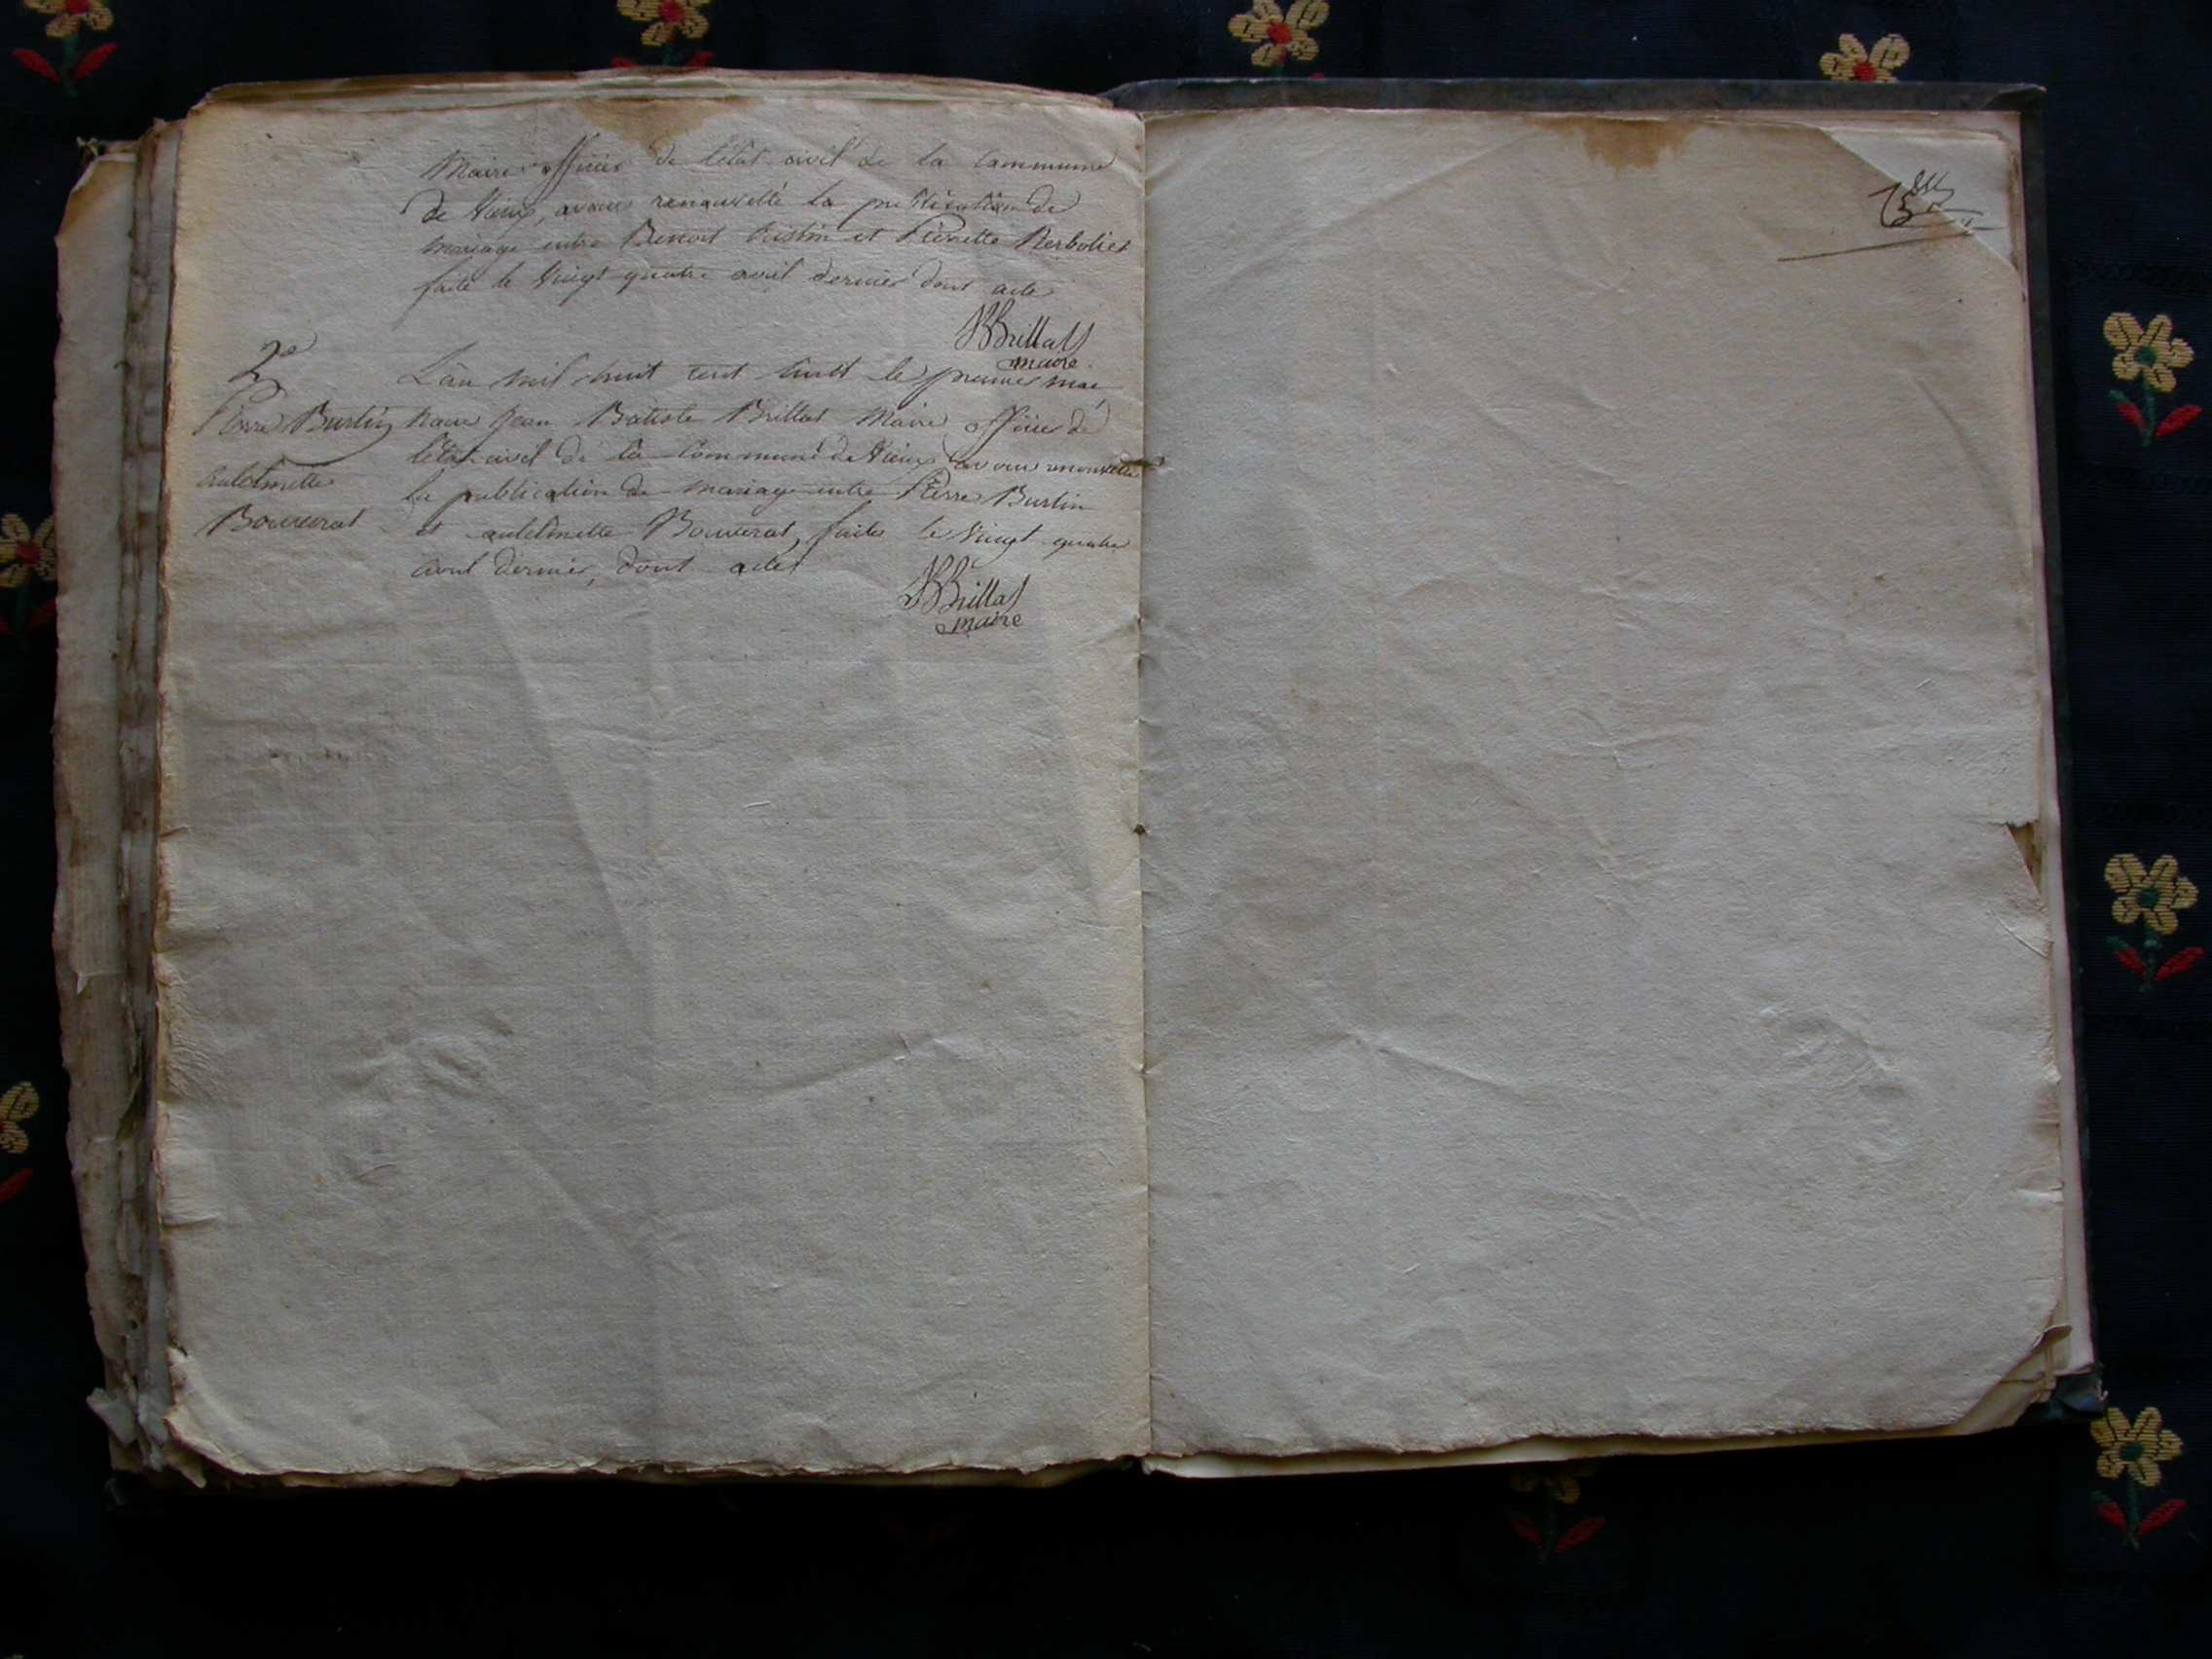 Maire officier de l'état civil de la Commune
de Vieu, avons renouvellé la publication de
mariage entre Benoit et Pierrette Berboliet
faite le Vingt quatre avril dernier dont acte
JBBrillat
maire
2e
L'an mil huit cent huit le premier mai
Pierre Burtin
nous Jean Batiste Brillat Maire officier de
l'état civil de la Commune de Vieu avons renouvellé
antelmette
la publication de mariage entre Pierre Burtin
Bouverat
et antelmette Bouverat, faite le Vingt quatre
avril dernier, dont acte
JBBrillat
maire